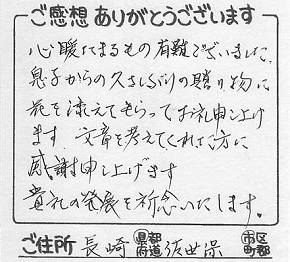 ご感想ありがとうございます
心暖たまるもの有難うございました。
息子からの久さしぶりの贈り物に
花を添えてもらってお礼申し上げ
ます 文章を考えてくれた方に
感謝申し上げます
貴社の発展を祈念いたします。
ご住所 長崎 都道府県 佐世保 市区町郡